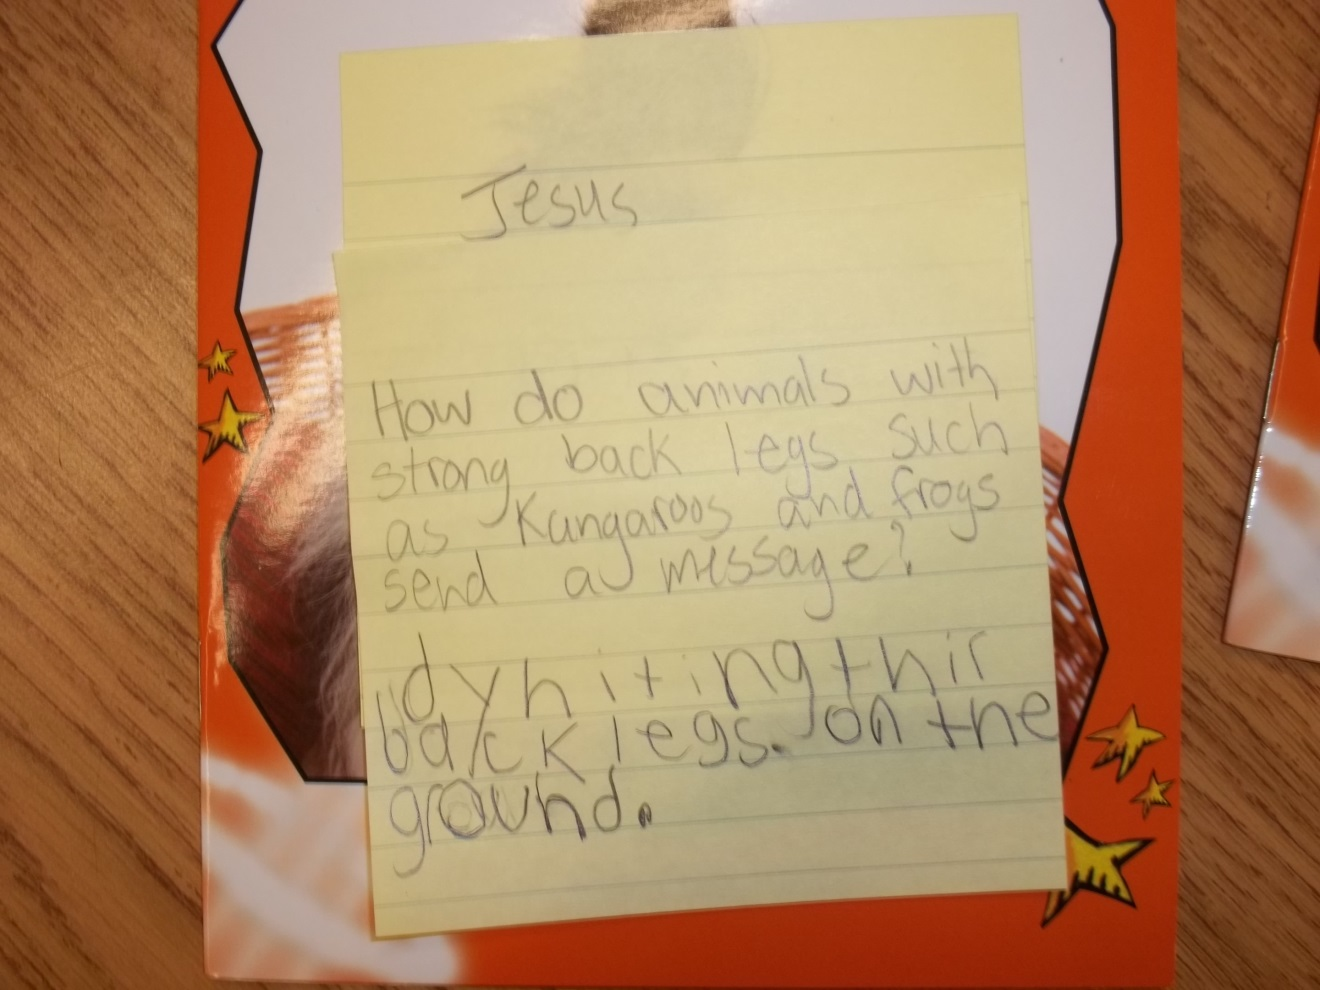 Jesus
How do animals with
strong back legs such
as Kangaroos and frogs
send a message?
dy hiting thir
back legs. on the
ground.